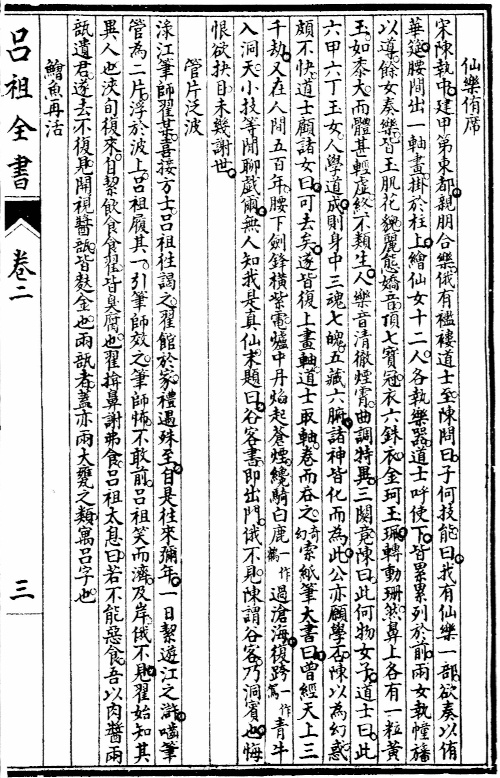 仙樂侑席
宋陳執中建甲第東都親朋合樂俄有襤褸道士至陳問曰子何技能曰我有仙樂一部欲奏以侑
華筵腰間出一軸畫掛於柱上繪仙女十二人各執樂器道士呼使下皆累累列於前兩女執幢旛
以導餘女奏樂皆玉肌花貌麗態嬌音頂七寶冠衣六銖衣金珂玉珮轉動珊然鼻上各有一粒黃
玉如黍大而體甚輕虛終不類生人樂音清徹煙霄曲調特異三闋竟陳曰此何物女子道士曰此
六甲六丁玉女人學道成則身中三魂七魄五藏六腑諸神皆化而為此公亦願學否陳以為幻惑
頗不快道士顧諸女曰可去矣遂皆復上畫軸道士取軸卷而吞之奇幻索紙筆大書曰曾經天上三
千劫又在人間五百年腰下劍鋒橫紫電爐中丹焰起蒼煙纔騎白鹿一作 過滄海復跨一作 青牛
入洞天小技等閒聊戲爾無人知我是真仙末題曰谷客書即出門俄不見陳謂谷客乃洞賓也悔
恨欲抉目未幾謝世
管片泛波
淥江筆師翟某喜接方士呂祖往謁之翟館於家禮遇殊至自是往來彌年一日絜遊江之滸嚙筆
管為二片浮於波上呂祖履其一引筆師效之筆師怖不敢前呂祖笑而濟及岸俄不見翟始知其
異人也浹旬復來自絜飲食食翟皆臭腐也翟揜鼻謝弗食呂祖太息曰若不能惡食吾以肉醬兩
瓿遺君遂去不復見開視醬瓿皆麩金也兩瓿者蓋亦兩大甕之類寓呂字也
鱠魚再活
呂祖全書
卷二
三